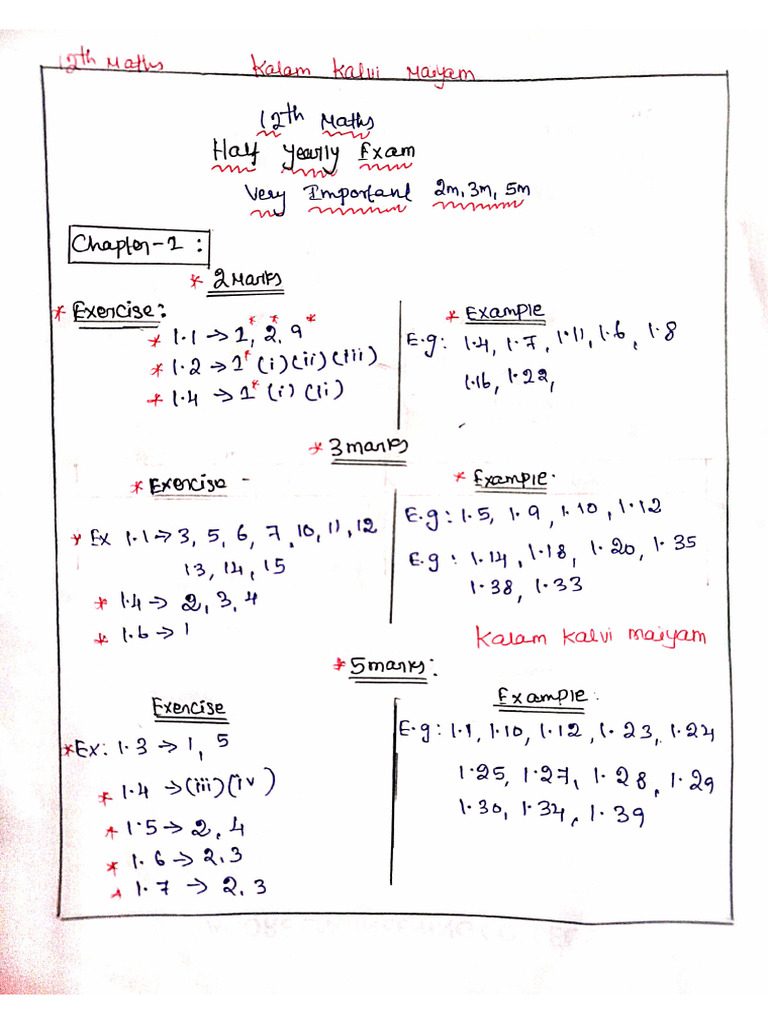 12th Maths Kalam Kalvi Maiyam
12th Maths
Half Yearly Exam
Very Important 2m, 3m, 5m
Chapter-1:
* 2 Marks
* Exercise:
* 1.1 → 1*, 2*, 9*
* 1.2 → 1* (i) (ii) (iii)
* 1.4 → 1* (i) (ii)
* Example
E.g: 1.4, 1.7, 1.11, 1.6, 1.8
1.16, 1.22,
* 3 marks
* Exercise -
* Ex 1.1 → 3, 5, 6, 7, 10, 11, 12
13, 14, 15
* 1.4 → 2, 3, 4
* 1.6 → 1
* Example.
E.g: 1.5, 1.9, 1.10, 1.12
E.g: 1.14, 1.18, 1.20, 1.35
1.38, 1.33
Kalam Kalvi Maiyam
* 5 marks:
Exercise
* Ex: 1.3 → 1, 5
* 1.4 → (iii) (iv)
* 1.5 → 2, 4
* 1.6 → 2, 3
* 1.7 → 2, 3
Example:
E.g: 1.1, 1.10, 1.12, 1.23, 1.24
1.25, 1.27, 1.28, 1.29
1.30, 1.34, 1.39